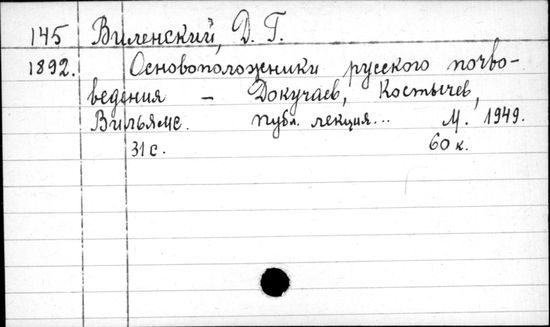 145 Виленский, Д. Г.
1892. Основоположники русского почво-
ведения - Докучаев, Костычев,
Вильямс. публ. лекция... М. 1949.
31 с. 60 к.